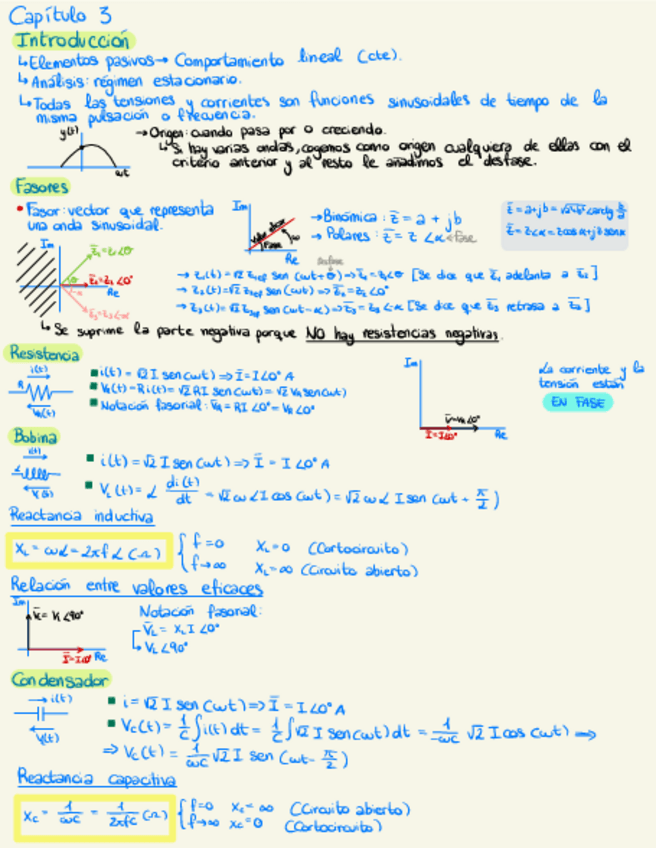 Capítulo 3
Introducción
↳Elementos pasivos→ Comportamiento lineal (cte).
↳Análisis: régimen estacionario.
↳Todas las tensiones y corrientes son funciones sinusoidales de tiempo de la
misma pulsación o frecuencia.
y(t)
ωt
→Origen: cuando pasa por 0 creciendo.
↳Si hay varias ondas, cogemos como origen cualquiera de ellas con el
criterio anterior y al resto le añadimos el desfase.
Fasores
• Fasor: vector que representa
una onda sinusoidal.
Im
Re
→Binómica: z̄ = a + jb
→ Polares: z̄ = z ∠α ←Fase
z̄ = a+jb = √a²+b² ∠arctg b/a
z̄ = z∠α = z cos α + j z sen α
Im
Re
z̄₁=z₁∠θ
z̄₂=z₂∠0°
z̄₃=z₃∠-α
Desfase
→ z₁(t) = √2 z₁ef sen (ωt+θ) ⇒ z̄₁ = z₁∠θ [Se dice que z̄₁ adelanta a z̄₂]
→ z₂(t) = √2 z₂ef sen (ωt) ⇒ z̄₂ = z₂∠0°
→ z₃(t) = √2 z₃ef sen (ωt-α) ⇒ z̄₃ = z₃∠-α [Se dice que z̄₃ retrasa a z̄₂]
↳ Se suprime la parte negativa porque NO hay resistencias negativas.
Resistencia
i(t)
R
VR(t)
■ i(t) = √2 I sen (ωt) ⇒ Ī = I∠0° A
■ VR(t) = Ri(t) = √2 RI sen (ωt) = √2 VR sen(ωt)
■ Notación fasorial: V̄R = RI ∠0° = VR ∠0°
Im
V̄=VR∠0°
Ī=I∠0°
Re
La corriente y la
tensión están
EN FASE
Bobina
i(t)
L
VL(t)
■ i(t) = √2 I sen (ωt) ⇒ Ī = I ∠0° A
■ VL(t) = L di(t)/dt = √2 ω L I cos (ωt) = √2 ω L I sen (ωt + π/2)
Reactancia inductiva
XL = ωL = 2πf L (Ω)
f=0 XL=0 (Cortocircuito)
f→∞ XL=∞ (Circuito abierto)
Relación entre valores eficaces
Im
V̄L= VL ∠90°
Ī=I∠0° Re
Notación fasorial:
V̄L = XL I ∠0°
↳ VL ∠90°
Condensador
→ i(t)
VC(t)
■ i = √2 I sen (ωt) ⇒ Ī = I∠0° A
■ VC(t) = 1/C ∫i(t) dt = 1/C ∫√2 I sen(ωt) dt = 1/-ωC √2 I cos (ωt) ⇒
⇒ VC(t) = 1/ωC √2 I sen (ωt - π/2)
Reactancia capacitiva
XC = 1/ωC = 1/2πfC (Ω)
f=0 XC=∞ (Circuito abierto)
f→∞ XC=0 (Cortocircuito)